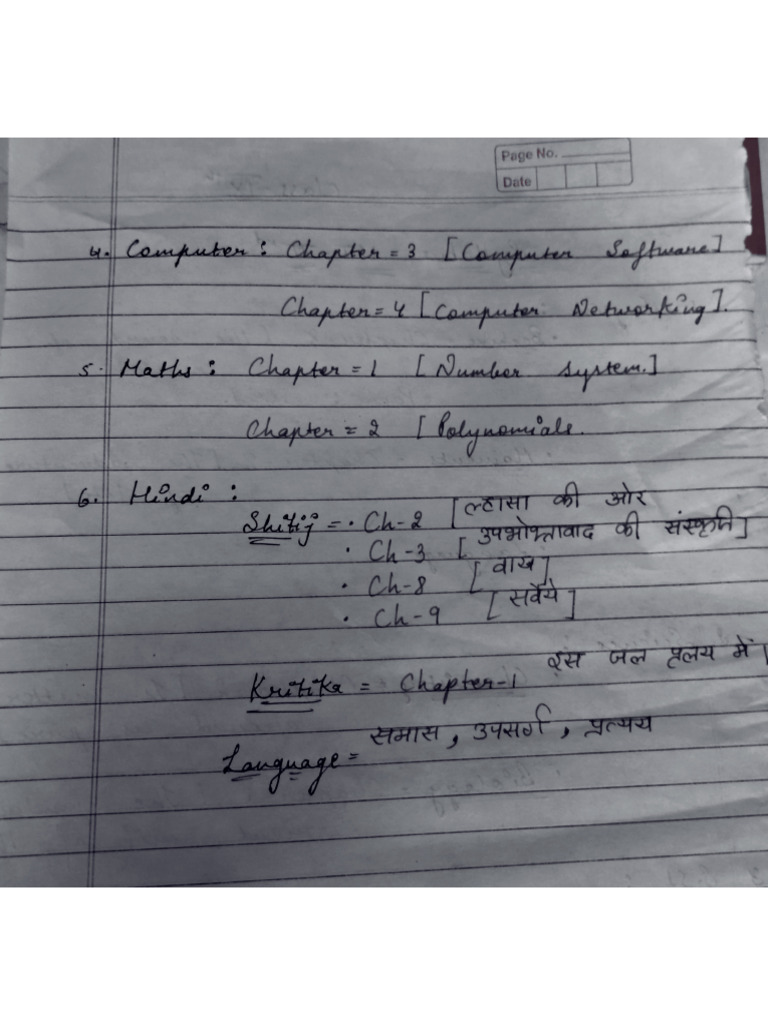 Page No.
Date
4. Computer : Chapter = 3 [Computer Software]
Chapter = 4 [Computer Networking].
5. Maths : Chapter = 1 [Number System.]
Chapter = 2 [Polynomials.
6. Hindi :
Shitij = · Ch-2 [ल्हासा की ओर
· Ch-3 [उपभोक्तावाद की संस्कृति]
· Ch-8 [वाख]
· Ch-9 [सवैये]
Kritika = Chapter-1 इस जल प्रलय में।
Language = समास, उपसर्ग, प्रत्यय